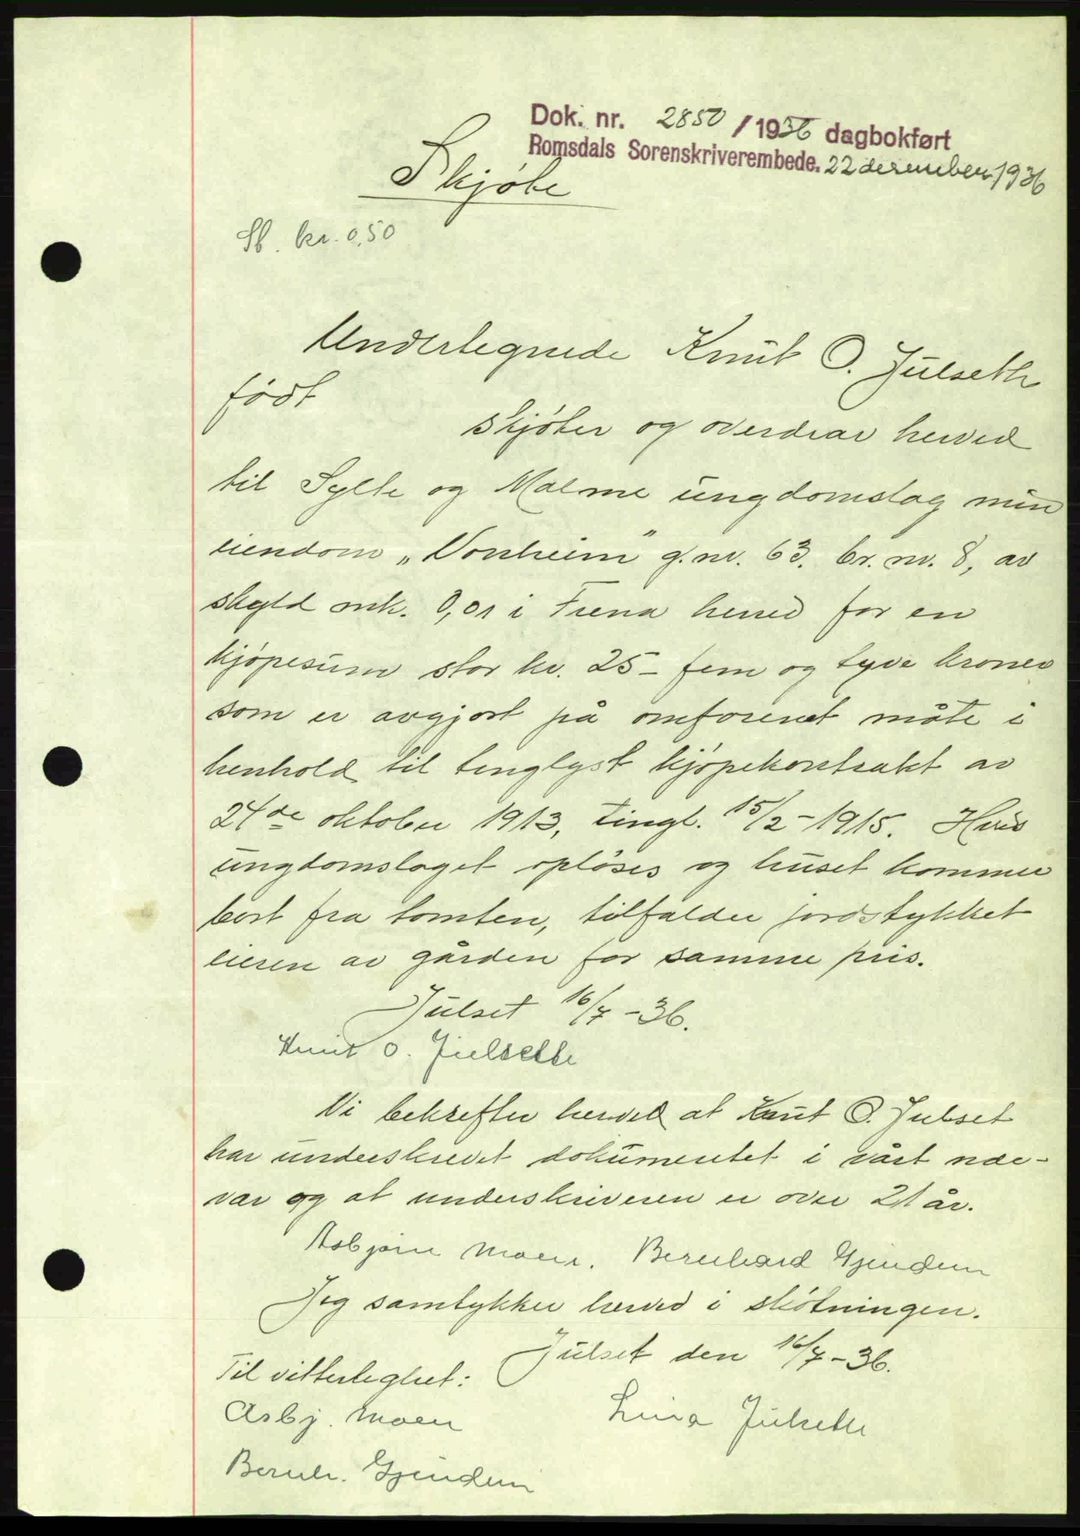 Dok. nr. 2850 / 1936 dagbokført
Romsdals Sorenskriverembede. 22 desember 1936
Skjøte
St. kr. 0,50
Undertegnede Knut O. Julseth
født
skjøter og overdrar herved
til Sylte og Malme ungdomslag min
eiendom „Vonheim" g.nr. 63. br. nr. 8, av
skyld mk. 0,01 i Fræna herred for en
kjøpesum stor kr. 25 – fem og tyve kroner
som er avgjort på omforenet måte i
henhold til tinglyst kjøpekontrakt av
24de oktober 1913, tingl. 15/2 – 1915. Hvis
ungdomslaget opløses og huset kommer
bort fra tomten, tilfalder jordstykket
eieren av gården for samme pris.
Julset 16/7 – 36.
Knut O. Julseth
Vi bekrefter herved at Knut O. Julset
har underskrevet dokumentet i vårt nær-
vær og at underskriveren er over 21 år.
Asbjørn Moen. Bernhard Gjendem
Jeg samtykker herved i skøtningen.
Julset den 16/7 – 36.
Til vitterlighet:
Asbj. Moen
Lina Julseth
Bernh. Gjendem